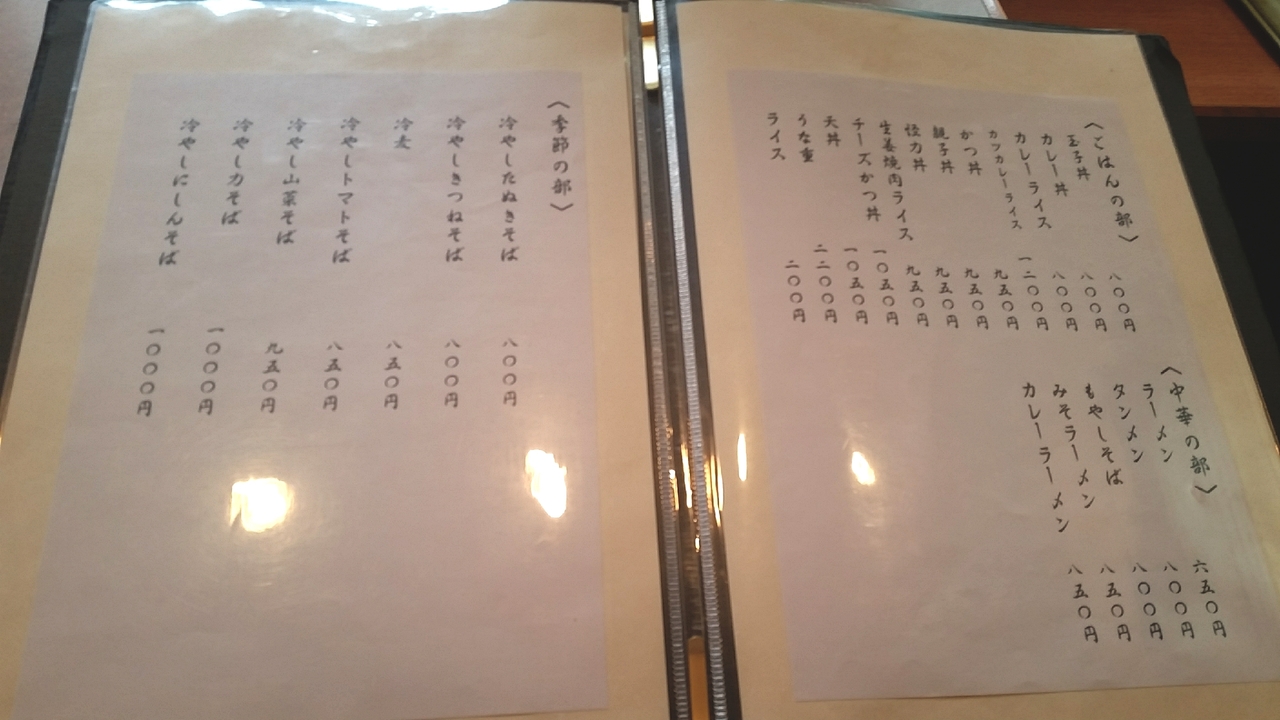 〈ごはんの部〉
玉子丼 八〇〇円
カレー丼 八〇〇円
カレーライス 八〇〇円
カツカレーライス 一二〇〇円
かつ丼 九五〇円
親子丼 九五〇円
怪力丼 九五〇円
生姜焼肉ライス 九五〇円
チーズかつ丼 一〇五〇円
天丼 一〇五〇円
うな重 二二〇〇円
ライス 二〇〇円
〈中華の部〉
ラーメン 六五〇円
タンメン 八〇〇円
もやしそば 八〇〇円
みそラーメン 八五〇円
カレーラーメン 八五〇円
〈季節の部〉
冷やしたぬきそば 八〇〇円
冷やしきつねそば 八〇〇円
冷麦 八五〇円
冷やしトマトそば 八五〇円
冷やし山菜そば 九五〇円
冷やし力そば 一〇〇〇円
冷やしにしんそば 一〇〇〇円